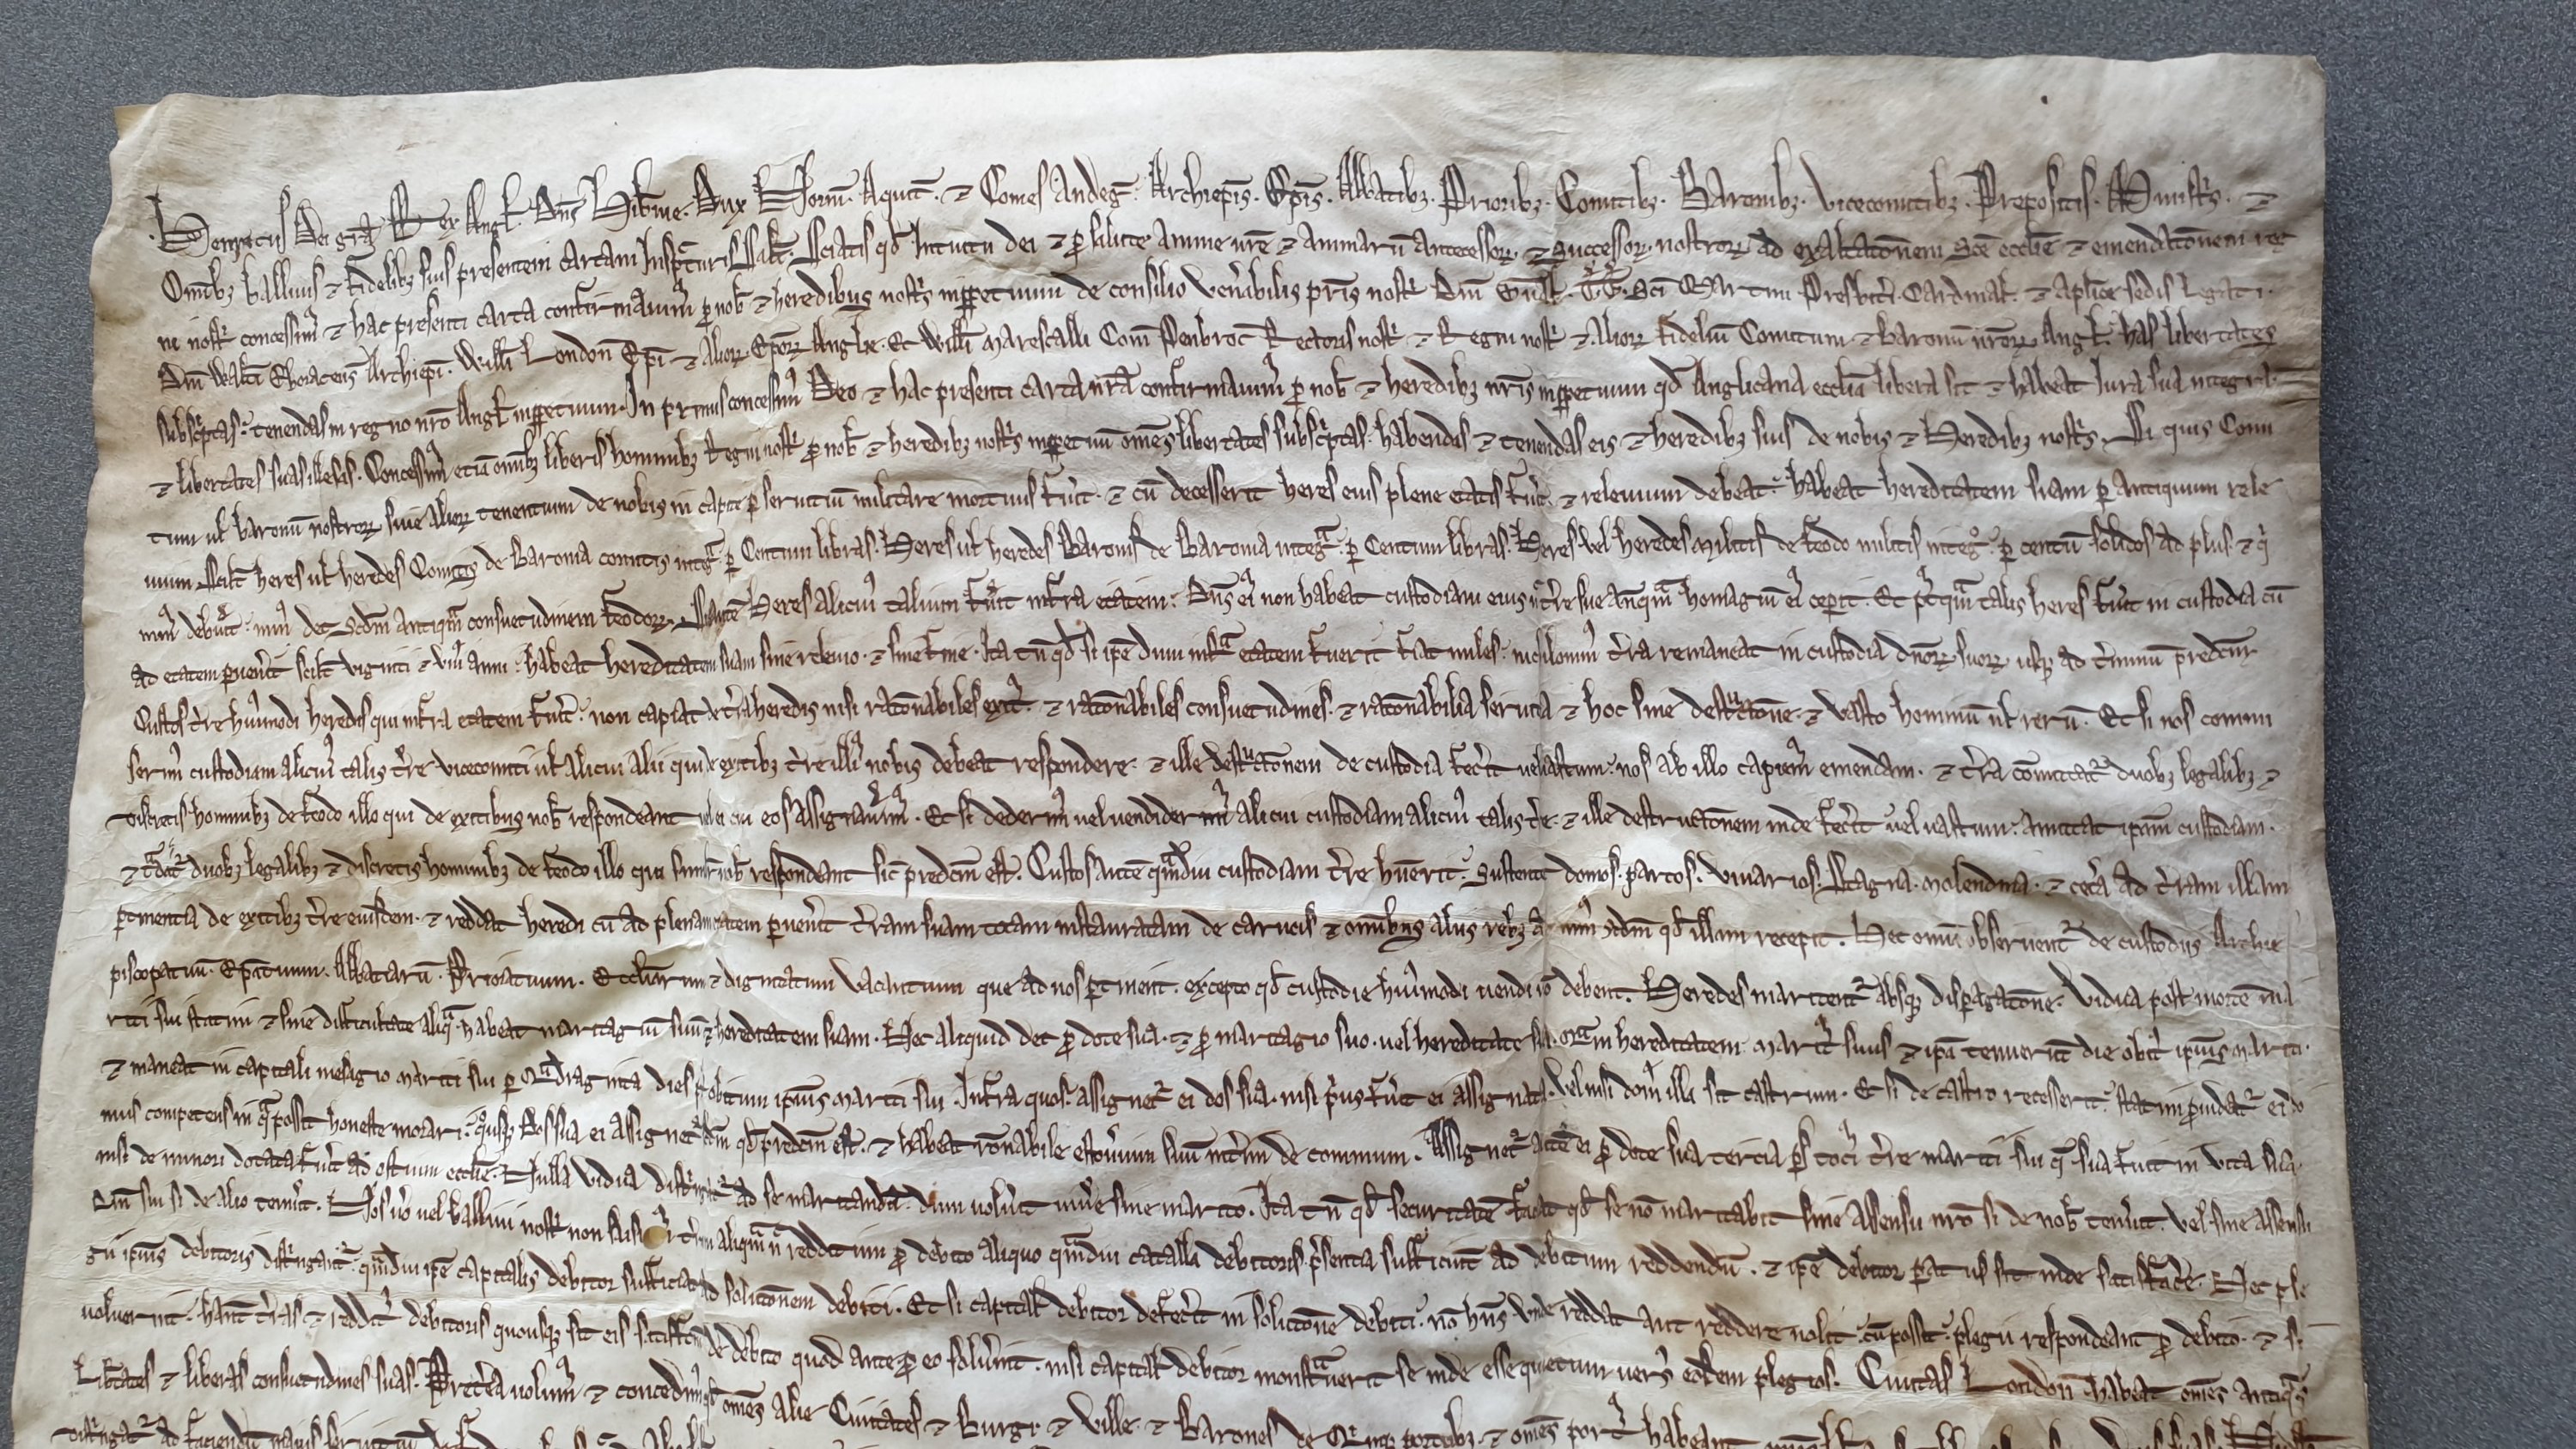 Henricus Dei gr̄a Rex Angl̄. Dn̄s Hib̄nie. Dux Norm̄. Aquit̄. ⁊ Comes Andeḡ. Archiep̄is. Ep̄is. Abbatibꝫ. Prioribꝫ. Comitibꝫ. Baronibꝫ. vicecomitibꝫ. Prepositis. Ministr̄. ⁊
Om̄ibꝫ ballivis ⁊ fidelibꝫ suis presentem cartam Insp̄cturis Salt̄. Sciatis qd̄ Intuitu dei ⁊ ꝓ salute anime nr̄e ⁊ animarū antecessoꝝ. ⁊ Successoꝝ. nostroꝝ ad exaltatōnem Sc̄e eccl̄ie ⁊ emendatōnem reg
ni nostr̄ concessimꝰ ⁊ hac presenti carta confirmavimꝰ ꝓ nob̄ ⁊ heredibus nostr̄s inꝑpetuum de consilio ven̄abilis pr̄is nostr̄ Dn̄i Gual̄. T̄T̄. Sc̄i Martini Presbit̄i. Cardinal̄. ⁊ aplīce sedis Legati.
Dn̄i Walt̄i Eboracens̄ Archiep̄i. Will̄i London̄ Ep̄i ⁊ alioꝝ Ep̄oꝝ Anglie. Et Will̄i Marescalli Com̄ Penbroc̄ Rectoris nostr̄ ⁊ Regni nostr̄ ⁊ Alioꝝ fideliū Comitum ⁊ baronū nr̄oꝝ Angl̄. has libertates
subscͥptas. tenendas in regno nr̄o Angl̄ inꝑpetuum. In primis concessimꝰ Deo ⁊ hac presenti carta nr̄a confirmavimꝰ ꝓ nob̄ ⁊ heredibꝫ nr̄is inꝑpetuum qd̄ Anglicana eccl̄ia libera sit ⁊ habeat Iura sua integra.
⁊ libertates suas illesas. Concessimꝰ etiā om̄ibꝫ liberis hominibꝫ Regni nostr̄ ꝓ nob̄ ⁊ heredibꝫ nostr̄s inꝑpetuū om̄es libertates subscͥptas. habendas ⁊ tenendas eis ⁊ heredibꝫ suis de nobis ⁊ Heredibꝫ nostr̄s. Si quis Comi
tum ul̄ baronū nostroꝝ sive alioꝝ tenentium de nobis in capite ꝑ servitiū militare mortuus fuīt. ⁊ cū decesserit heres eius plene etatis fuīt. ⁊ relevium debeat. habeat hereditatem suam ꝑ antiquum rele
vium. Scil̄t heres ul̄ heredes Comitis de Baronia comitis integᵃ. ꝑ Centum libras. Heres ul̄ heredes Baronis de Baronia integᵃ. ꝑ Centum libras. Heres. vel heredes militis de feodo militis integᵒ. ꝑ centū solidos ad plus. ⁊ qͥ
minꝰ debuīt. minꝰ det. Scd̄m antiqᵃm consuetudinem feodoꝝ. Si autē Heres alicuiꝰ talium fuīt infra etatem. Dn̄s eiꝰ non habeat custodiam eius n̄ tr̄e sue anteqᵃm homagiū eiꝰ cepīt. Et pꝰtqᵃm talis heres fuīt in custodia cū
ad etatem ꝑven̄it scil̄t viginti ⁊ uniꝰ anni. habeat hereditatem suam sine relevio. ⁊ sine fine. Ita tn̄ qd̄ si ip̄e dum infᵃ etatem fuerit fiat miles. nichilominꝰ tr̄ra remaneat in custodia dn̄oꝝ suoꝝ. usqꝫ ad t̄minū predc̄m.
Custos tr̄e huiꝰmodi heredis qui infra etatem fuīt. non capiat de tr̄a heredis nisi ratōnabiles exitꝰ. ⁊ ratōnabiles consuetudines. ⁊ ratōnabilia servitia ⁊ hoc sine destrͧctōne. ⁊ vasto hominū ul̄ rerū. Et si nos commi
serimꝰ custodiam alicuiꝰ talis tr̄e vicecomiti ul̄ alicui alii qui de exitibꝫ tr̄e illiꝰ nobis debeat respondere. ⁊ ille destrͧctōnem de custodia fec̄it vel vastum. nos ab illo capiemꝰ emendam. ⁊ tr̄ra com̄ittatᷣ duobꝫ legalibꝫ. ⁊
discretis hominibꝫ de feodo illo qui de exitibus nob̄ respondeant vel ei cui eos assignav̄imꝰ. Et si dederimꝰ vel vendiderimꝰ alicui custodiam alicuiꝰ talis tr̄e. ⁊ ille destructōnem inde fec̄it vel vastum. amittat ip̄am custodiam.
⁊ tᵃdatᷣ duobꝫ legalibꝫ ⁊ discretis hominibꝫ de feodo illo qui similr̄ nob̄ respondeant sic̄ predc̄m est. Custos autē qᵃmdiu custodiam tr̄e huerit. Sustentet domos. parcos. vivarios. Stagna. molendina. ⁊ cet̄a ad tr̄am illam
ꝑtinentia de exitibꝫ tr̄e eiusdem. ⁊ reddat heredi cū ad plenam etatem ꝑven̄it tr̄am suam totam instauratam de carucis ⁊ om̄ibus aliis rebꝫ ad minꝰ scd̄m qd̄ illam recepit. Hec om̄ia observentᷣ de custodiis Archie
piscopatuū. Ep̄atuum. Abbatiarū. Prioratuum. Eccl̄iarum ⁊ dignitatum vacantium que ad nos ꝑtinent. excepto qd̄ custodie huiꝰmodi vendi nō debent. Heredes maritentᷣ absqꝫ disꝑagatōne. Vidua post mortē ma
riti sui statim ⁊ sine difficultate aliqᵃ. habeat maritagiū suū ⁊ hereditatem suam. Nec aliquid det ꝓ dote sua. ⁊ ꝓ maritagio suo. vel hereditate sua. qᵃm hereditatem. maritꝰ suus ⁊ ip̄a tenuerūt die obitꝰ ipsius mariti.
⁊ maneat in capitali mesagio mariti sui ꝑ Qᵃdraginta dies pꝰ obitum ipsius mariti sui. Infra quos. assignetᷣ ei dos sua. nisi pͥus fuīt ei assignata. Vel nisi domꝰ illa sit castrum. Et si de castro recesserit. statim ꝓvideatᷣ ei do
mus competens in qᵃ possit honeste morari. qͦusqꝫ dos sua ei assignetᷣ scd̄m qd̄ predc̄m est. ⁊ habeat rōnabile estov̄ium suū int̄im de communi. Assignetᷣ autē ei ꝓ dote sua tercia ꝑs tociꝰ tr̄e mariti sui qᵉ sua fuit in vita sua.
nisi de minori dotata fuīt ad ostium eccl̄ie. Nulla vidua distrͥngatᷣ ad se maritandā. dum volūit viv̄e sine marito. Ita tn̄ qd̄ securitatē faciat qd̄ se nō maritabit sine assensu nr̄o si de nob̄ tenūit. vel sine assensu
Dn̄i sui si de alio tenūit. Nos v̄o vel ballivi nostr̄ non saisi tr̄m aliqᵃm n̄ redditum ꝓ debito aliquo qᵃmdiu catalla debitoris pͥsentia sufficiūt ad debitum reddendū. ⁊ ip̄e debitor ꝑatus sit inde satisfac̄e. Nec ple
gii ipsius debitoris distrͥngantᷣ. qᵃmdiu ip̄e capitalis debitor sufficiat ad solutōnem debiti. Et si capital̄ debitor defec̄it in solutōne debiti. nō hn̄s unde reddat aut reddere nolit. cū possit. plegii respondeant ꝓ debito. ⁊ si
voluerint. hant tr̄as ⁊ redditꝰ debitoris quousqꝫ sit eis satisfcm̄ de debito quod ante ꝓ eo solūint. nisi capital̄ debitor monstᵃverit se inde esse quietum versꝰ eosdem plegios. Civitas London̄ habeat om̄es antiqᵃs
Lib̄tates ⁊ liberas consuetudines suas. Pret̄ea volumꝰ ⁊ concedimꝰ qd̄ om̄es alie Civitates ⁊ Burgi ⁊ Ville ⁊ Barones de Qͥnqꝫ portubꝫ. ⁊ om̄es portꝰ habeant
distrͥngatᷣ ad faciendū maius servitium